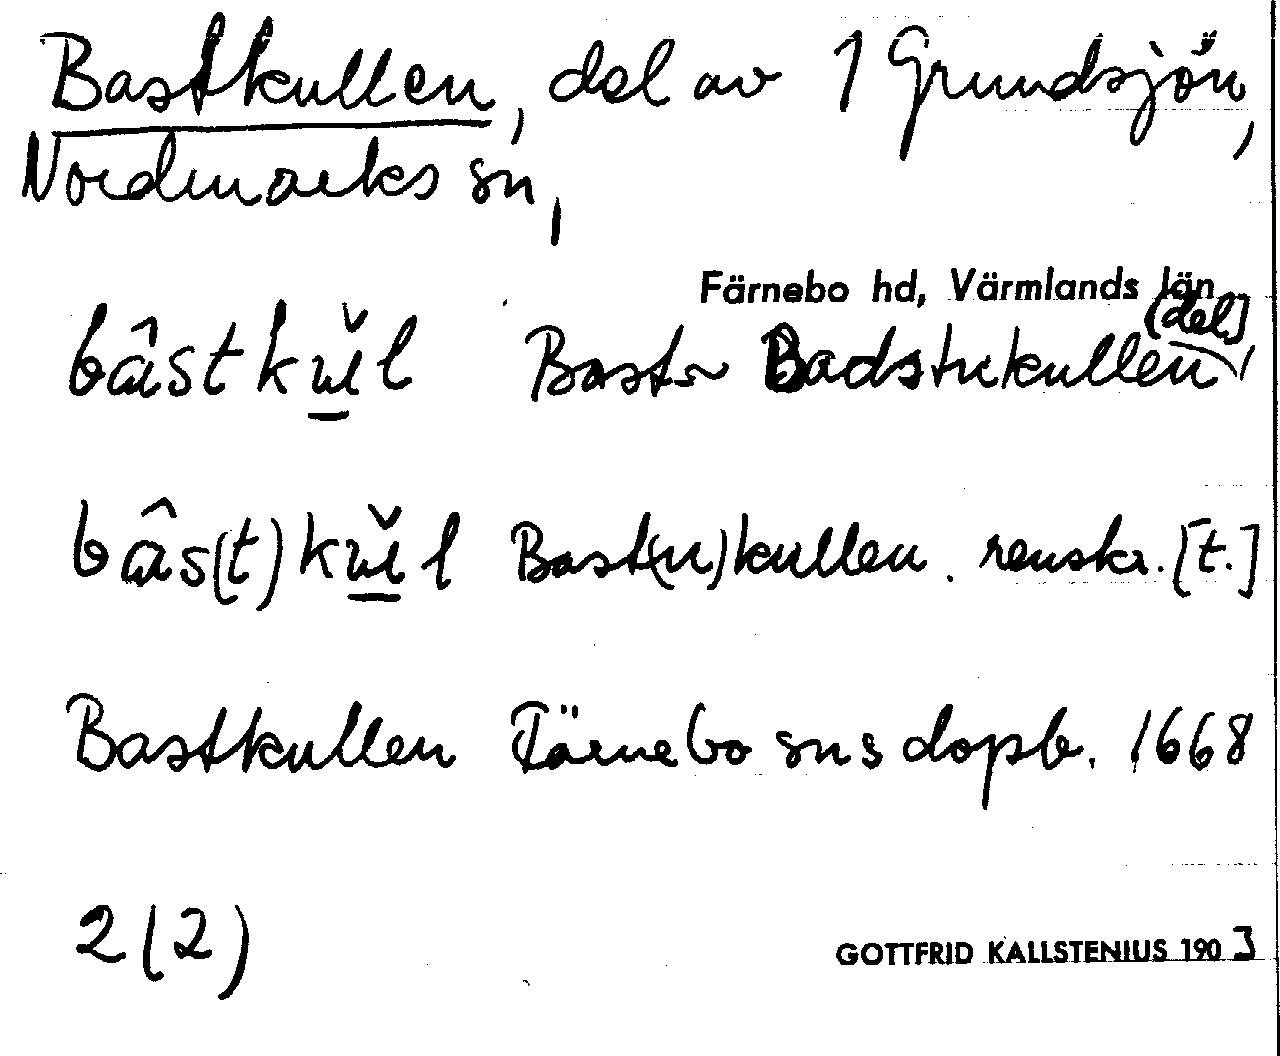 Bastkullen, del av 1 Grundsjön,
Nordmarks sn,
Färnebo hd, Värmlands län
[del]
bâstkŭl Bast- Badstukullen
bâs(t)kŭl Bast(u)kullen. renskr. [t.]
Bastkullen Färnebo sns dopb. 1668
2(2)
GOTTFRID KALLSTENIUS 1903